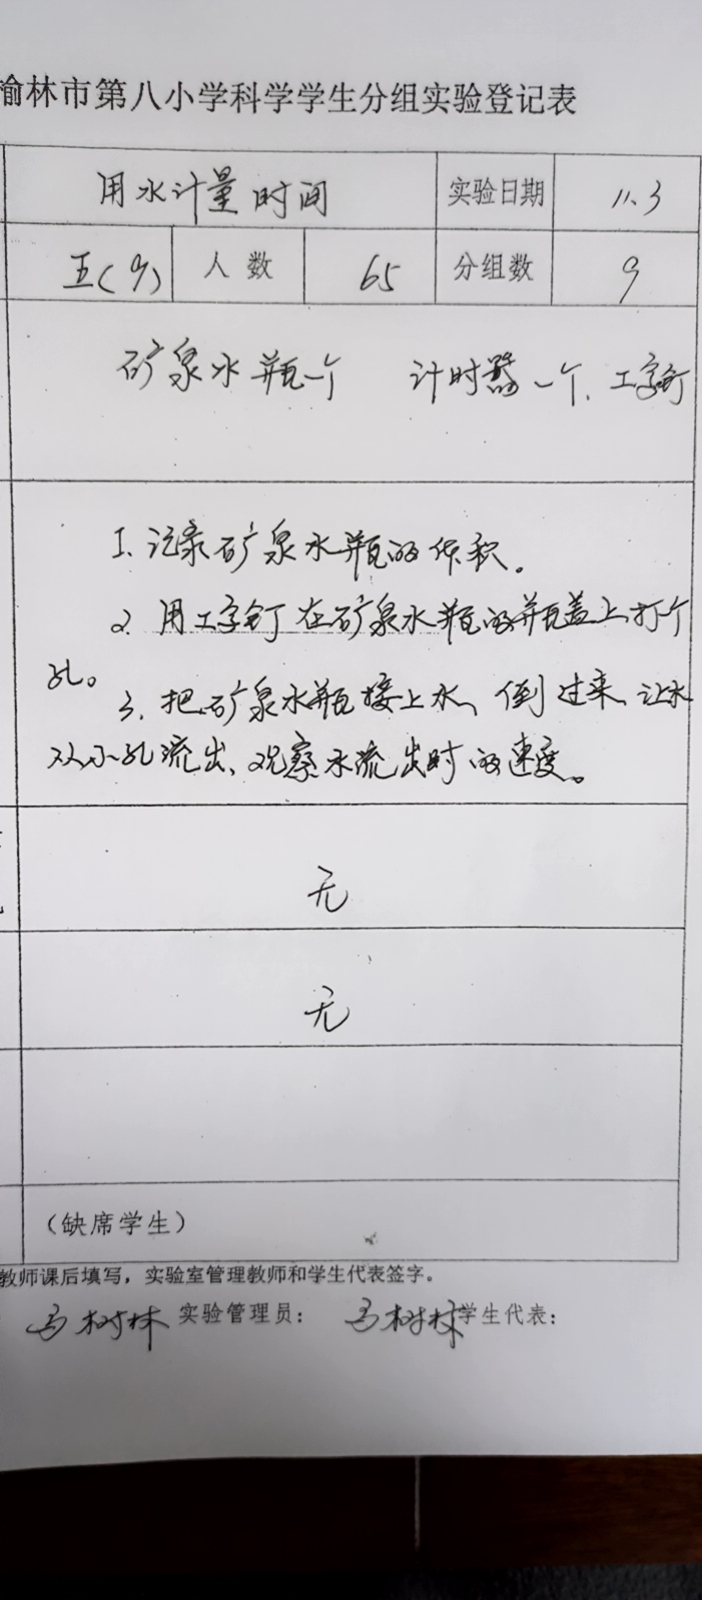 榆林市第八小学科学学生分组实验登记表
用水计量时间 实验日期 11.3
五(9) 人数 65 分组数 9
矿泉水瓶一个 计时器一个、工字钉
1、记录矿泉水瓶的体积。
2、用工字钉在矿泉水瓶的瓶盖上打个
孔。
3、把矿泉水瓶接上水、倒过来、让水
从小孔流出、观察水流出时的速度。
无
无
(缺席学生)
教师课后填写，实验室管理教师和学生代表签字。
马树林 实验管理员： 马树林 学生代表：